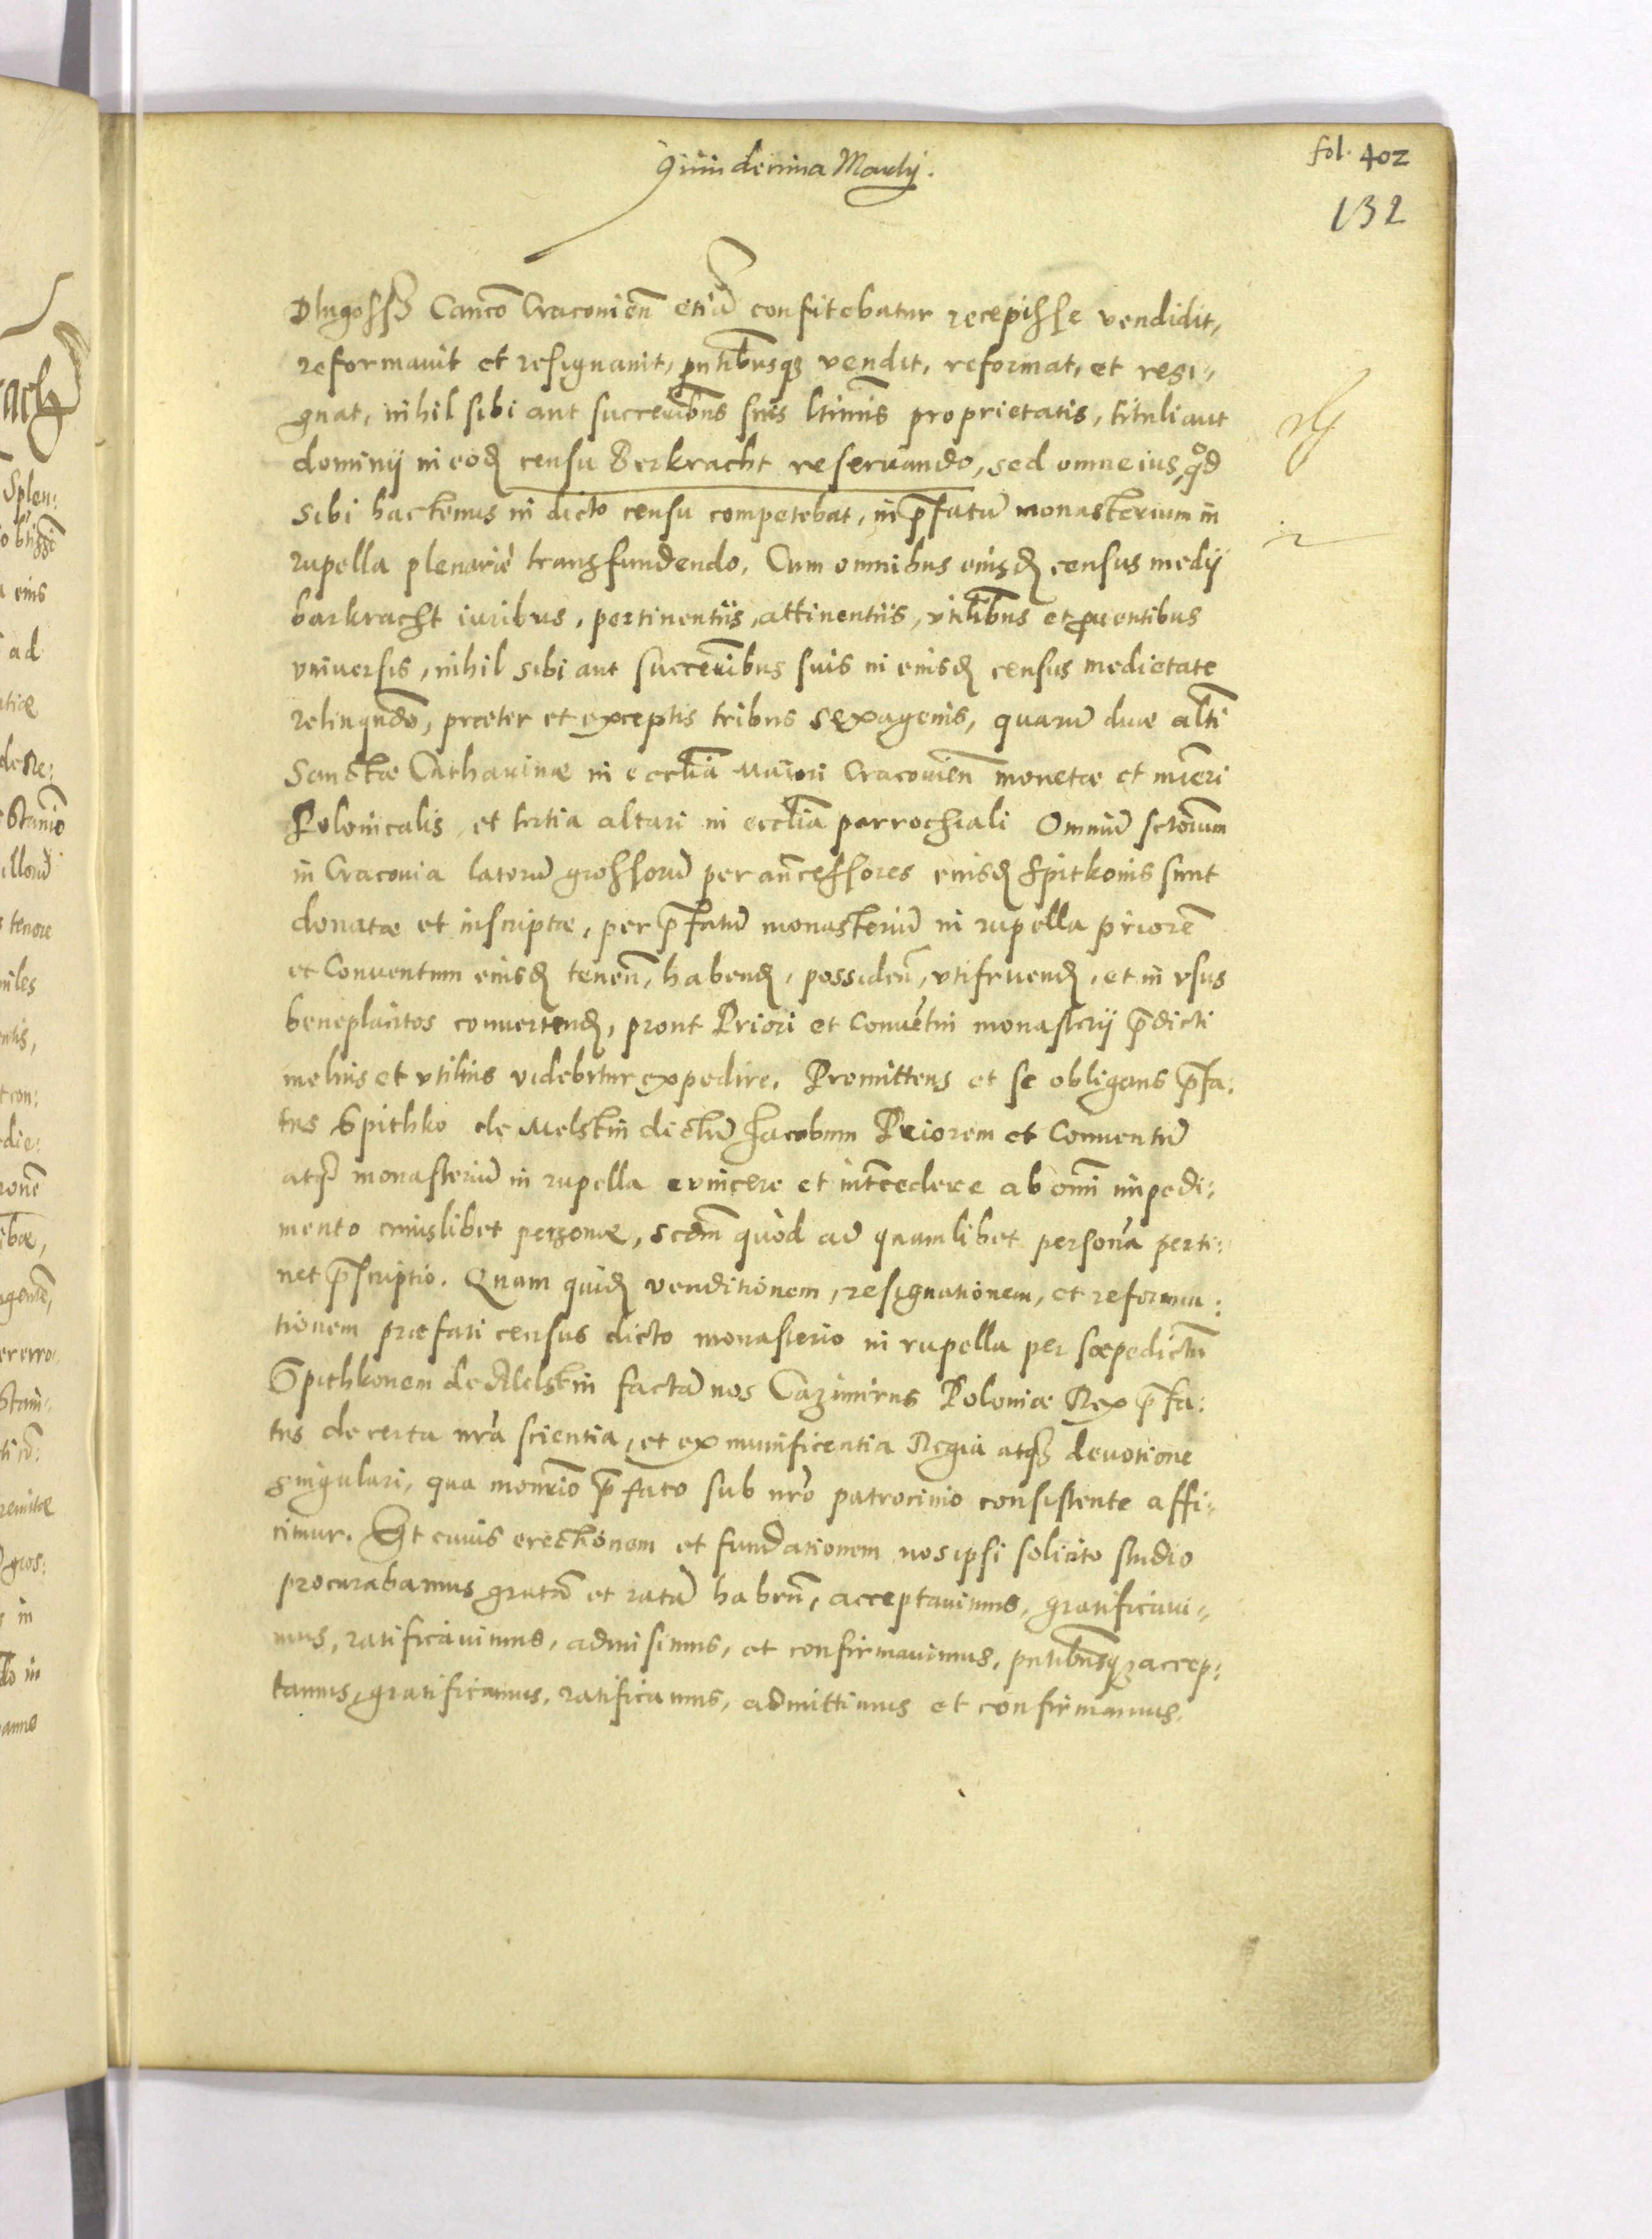 Quindecima Martij.
fol. 402
132
Dlugossz Canco Cracovien̄ etiā confitebatur recepisse vendidit,
reformavit et resignavit, pn̄tibusqȝ vendit, reformat, et resi-
gnat, nihil sibi aut successoribus suis ltimis proprietatis, tituli aut
dominij in eodē censu Berkracht reservando, sed omne ius, qod
sibi hactenus in dicto censu competebat, in p̄fatū monasterium in
rupella plenariè transfundendo. Cum omnibus eiusdē census medij
barkracht iuribus, pertinentiis, attinentiis, vtilibus et proventibus
vniversis, nihil sibi aut successoribus suis in eiusdē census medietate
relinqndo, praeter et exceptis tribus sexagenis, quarū duae altī
Sanctae Catharinae in ecclīa Maiori Cracovien̄ monetae et nūeri
Polonicalis, et tertia altari in ecclīa parrochiali Omniū sctorum
in Cracovia latorū grossorū per an̄cessores eiusdē Spitkonis sunt
donatae et inscriptae, per p̄fatū monasteriū in rupella priorē
et Conventum eiusdē tenen̄, habendē, possiden̄, vtifruendē, et in vsus
beneplacitos convertendē, prout Priori et Convētui monasterij p̄dicti
melius et vtilius videbitur expedire. Promittens et se obligans p̄fa:
tus Spithko de Melstin dictū Jacobum Priorem et Conventū
atqȝ monasteriū in rupella evincere et intcedere ab omī impedi:
mento cuiuslibet personae, scdm quòd ad quamlibet personā perti:
net p̄scriptio. Quam quidē venditionem, resignationem, et reforma:
tionem praefati census dicto monasterio in rupella per saepedictū
Spithkonem de Melstin factā nos Cazimirus Poloniae Rex p̄fa:
tus de certa nrā scientia, et ex munificentia Regia atqȝ devotione
singulari, qua monrio p̄fato sub nrō patrocinio consistente affi-
cimur. Et cuius erectionem et fundationem nos ipsi solicito studio
procurabamus gratā et ratā haben̄, acceptavimus, gratificavi-
mus, ratificavimus, admisimus, et confirmavimus, pn̄tibusqȝ accep:
tamus, gratificamus, ratificamus, admittimus et confirmamus.